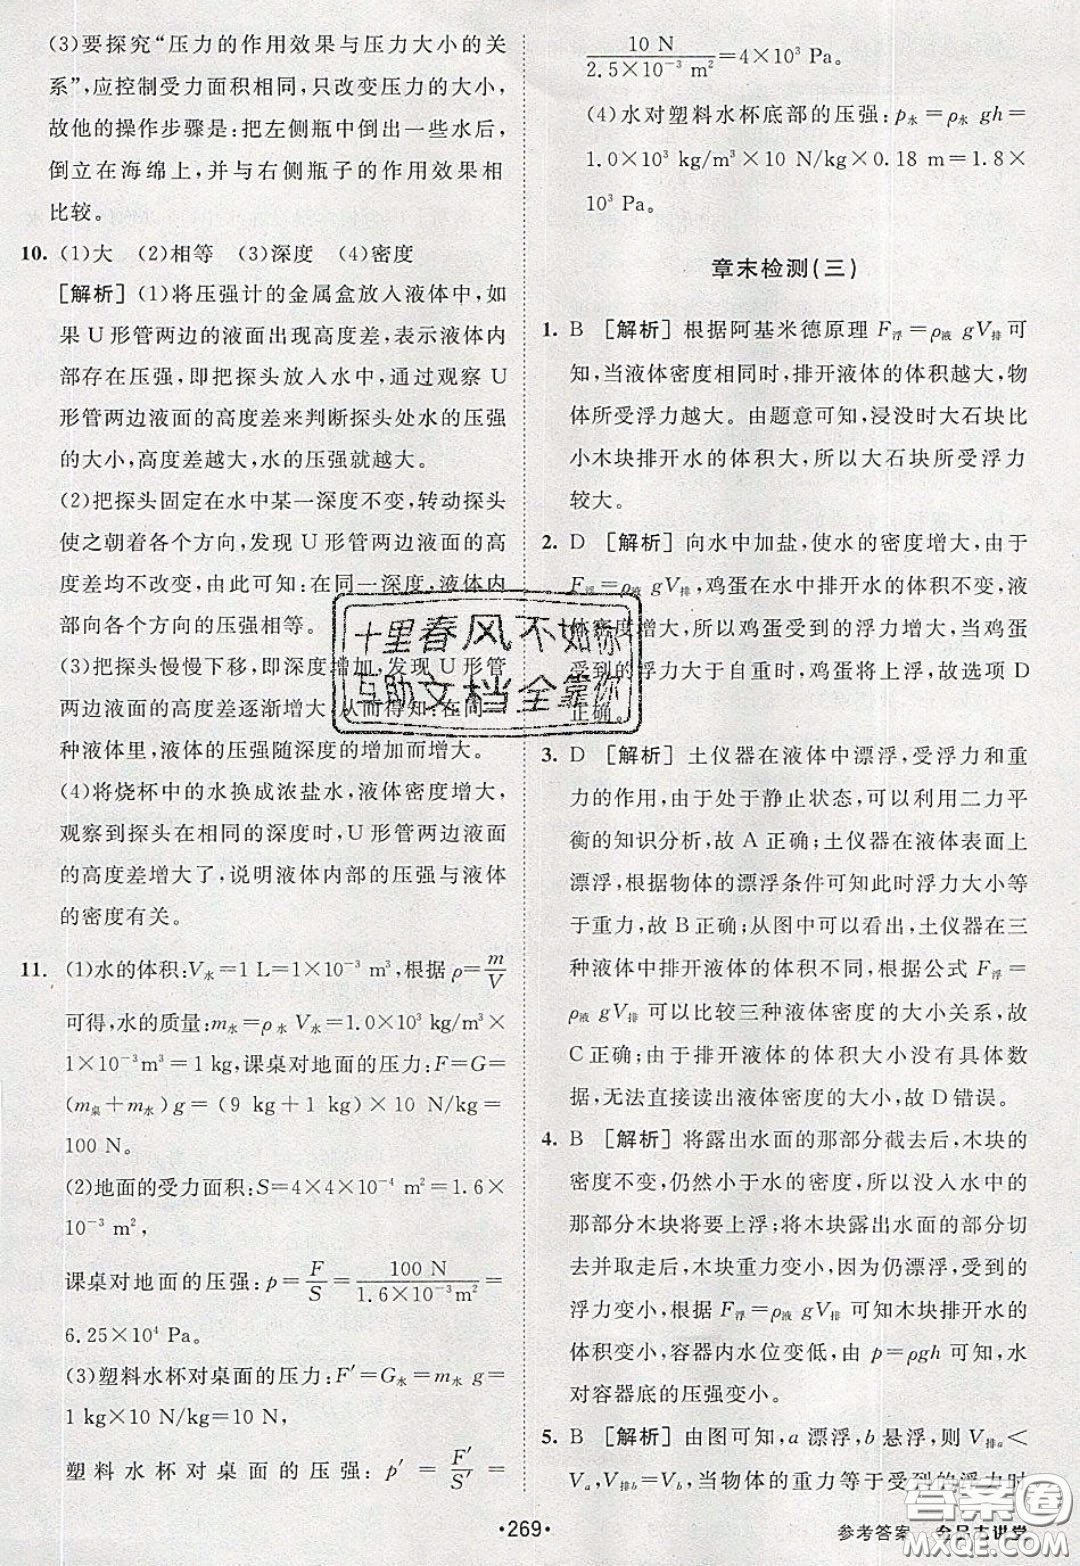 (3)要探究“压力的作用效果与压力大小的关
系”,应控制受力面积相同,只改变压力的大小,
故他的操作步骤是:把左侧瓶中倒出一些水后,
倒立在海绵上,并与右侧瓶子的作用效果相
比较。
10. (1)大 (2)相等 (3)深度 (4)密度
[解析] (1)将压强计的金属盒放入液体中,如
果 U 形管两边的液面出现高度差,表示液体内
部存在压强,即把探头放人水中,通过观察 U
形管两边液面的高度差来判断探头处水的压强
的大小,高度差越大,水的压强就越大。
(2)把探头固定在水中某一深度不变,转动探头
使之朝着各个方向,发现 U 形管两边液面的高
度差均不改变,由此可知:在同一深度,液体内
部向各个方向的压强相等。
(3)把探头慢慢下移,即深度增加,发现 U 形管
两边液面的高度差逐渐增大,从而得知:在同一
种液体里,液体的压强随深度的增加而增大。
(4)将烧杯中的水换成浓盐水,液体密度增大,
观察到探头在相同的深度时,U 形管两边液面
的高度差增大了,说明液体内部的压强与液体
的密度有关。
11. (1)水的体积:V水=1 L=1×10⁻³ m³,根据 ρ=m/V
可得,水的质量:m水=ρ水 V水=1.0×10³ kg/m³×
1×10⁻³m³=1 kg,课桌对地面的压力:F=G=
(m桌+m水)g=(9 kg+1 kg)×10 N/kg=
100 N。
(2)地面的受力面积:S=4×4×10⁻⁴ m²=1.6×
10⁻³ m²,
课桌对地面的压强:p=F/S=100 N/1.6×10⁻³m²=
6.25×10⁴ Pa。
(3)塑料水杯对桌面的压力:F′=G水=m水 g=
1 kg×10 N/kg=10 N,
塑料水杯对桌面的压强:p′=F′/S′=
10 N/2.5×10⁻³ m²=4×10³ Pa。
(4)水对塑料水杯底部的压强:p水=ρ水 gh=
1.0×10³ kg/m³×10 N/kg×0.18 m=1.8×
10³ Pa。
章末检测(三)
1. B [解析] 根据阿基米德原理 F浮=ρ液 gV排可
知,当液体密度相同时,排开液体的体积越大,物
体所受浮力越大。由题意可知,浸没时大石块比
小木块排开水的体积大,所以大石块所受浮力
较大。
2. D [解析] 向水中加盐,使水的密度增大,由于
F浮=ρ液 gV排,鸡蛋在水中排开水的体积不变,液
体密度增大,所以鸡蛋受到的浮力增大,当鸡蛋
受到的浮力大于自重时,鸡蛋将上浮,故选项 D
正确。
3. D [解析] 土仪器在液体中漂浮,受浮力和重
力的作用,由于处于静止状态,可以利用二力平
衡的知识分析,故 A 正确;土仪器在液体表面上
漂浮,根据物体的漂浮条件可知此时浮力大小等
于重力,故 B 正确;从图中可以看出,土仪器在三
种液体中排开液体的体积不同,根据公式 F浮=
ρ液 gV排 可以比较三种液体密度的大小关系,故
C 正确;由于排开液体的体积大小没有具体数
据,无法直接读出液体密度的大小,故 D 错误。
4. B [解析] 将露出水面的那部分截去后,木块的
密度不变,仍然小于水的密度,所以没入水中的
那部分木块将要上浮;将木块露出水面的部分切
去并取走后,木块重力变小,因为仍漂浮,受到的
浮力变小,根据 F浮=ρ液 gV排 可知木块排开水的
体积变小,容器内水位变低,由 p=ρgh 可知,水
对容器底的压强变小。
5. B [解析] 由图可知,a 漂浮,b 悬浮,则 V排a<
Va,V排b=Vb,当物体的重力等于受到的浮力时
十里春风不如你
互助文档全靠你
·269·
参考答案
答案圈
MXQE.COM